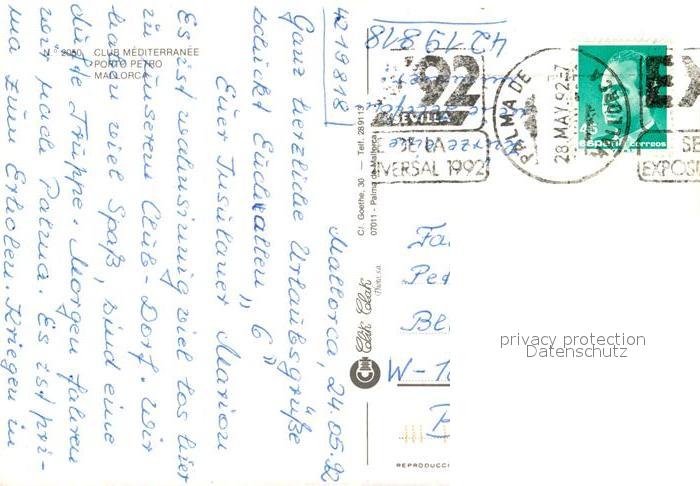 Mallorca, 24.05.92
Ganz herzliche Urlaubsgrüße
schickt Euch allen "6"
Euer Insulaner Marion
Es ist wahnsinnig viel los hier
in unserem Club-Dorf. Wir
haben viel Spaß, sind eine
dufte Truppe. Morgen fahren
wir nach Palma. Es ist pri-
ma zum Erholen. Kriegen in
4219818
4219818
N.º 2050 CLUB MÉDITERRANÉE
PORTO PETRO
MALLORCA
C/. Goethe, 30 — Telf. 28 91 13
07011 - Palma de Mallorca
Clik Clak
'92
SEVILLA
UNIVERSAL 1992
PALMA DE MALLORCA
28 MAY 92
45
españa correos
EX
SE
EXPOSI
Fa
Pe
Bl
W-1
REPRODUCCI
privacy protection
Datenschutz